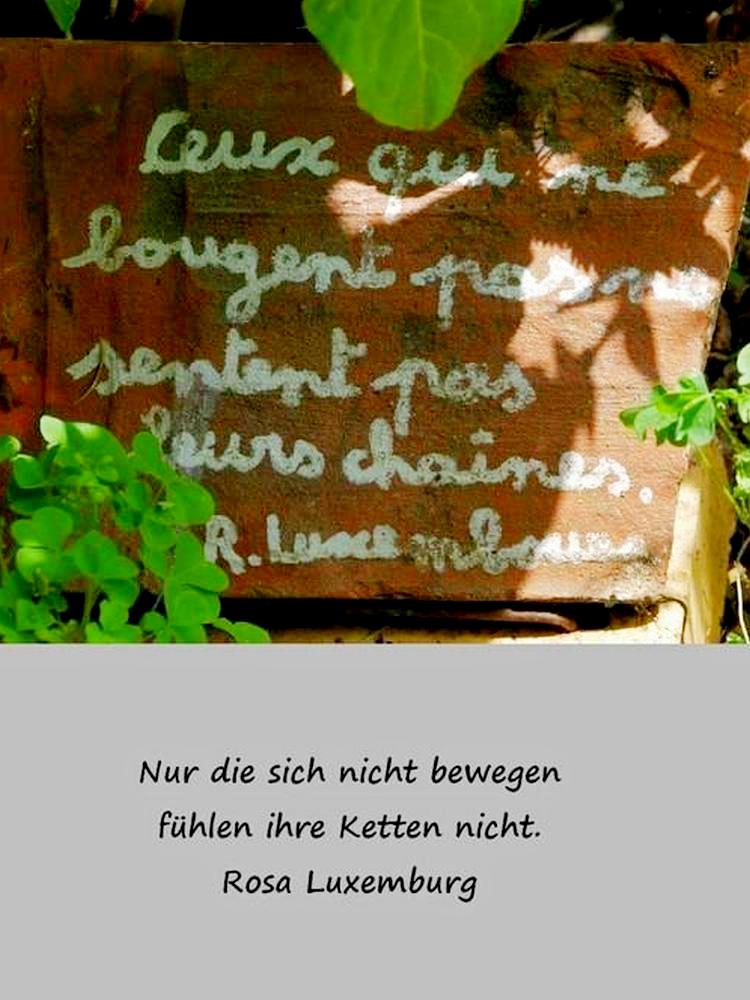 Ceux qui ne
bougent pas ne
sentent pas
leurs chaînes.
R. Luxembourg
Nur die sich nicht bewegen
fühlen ihre Ketten nicht.
Rosa Luxemburg